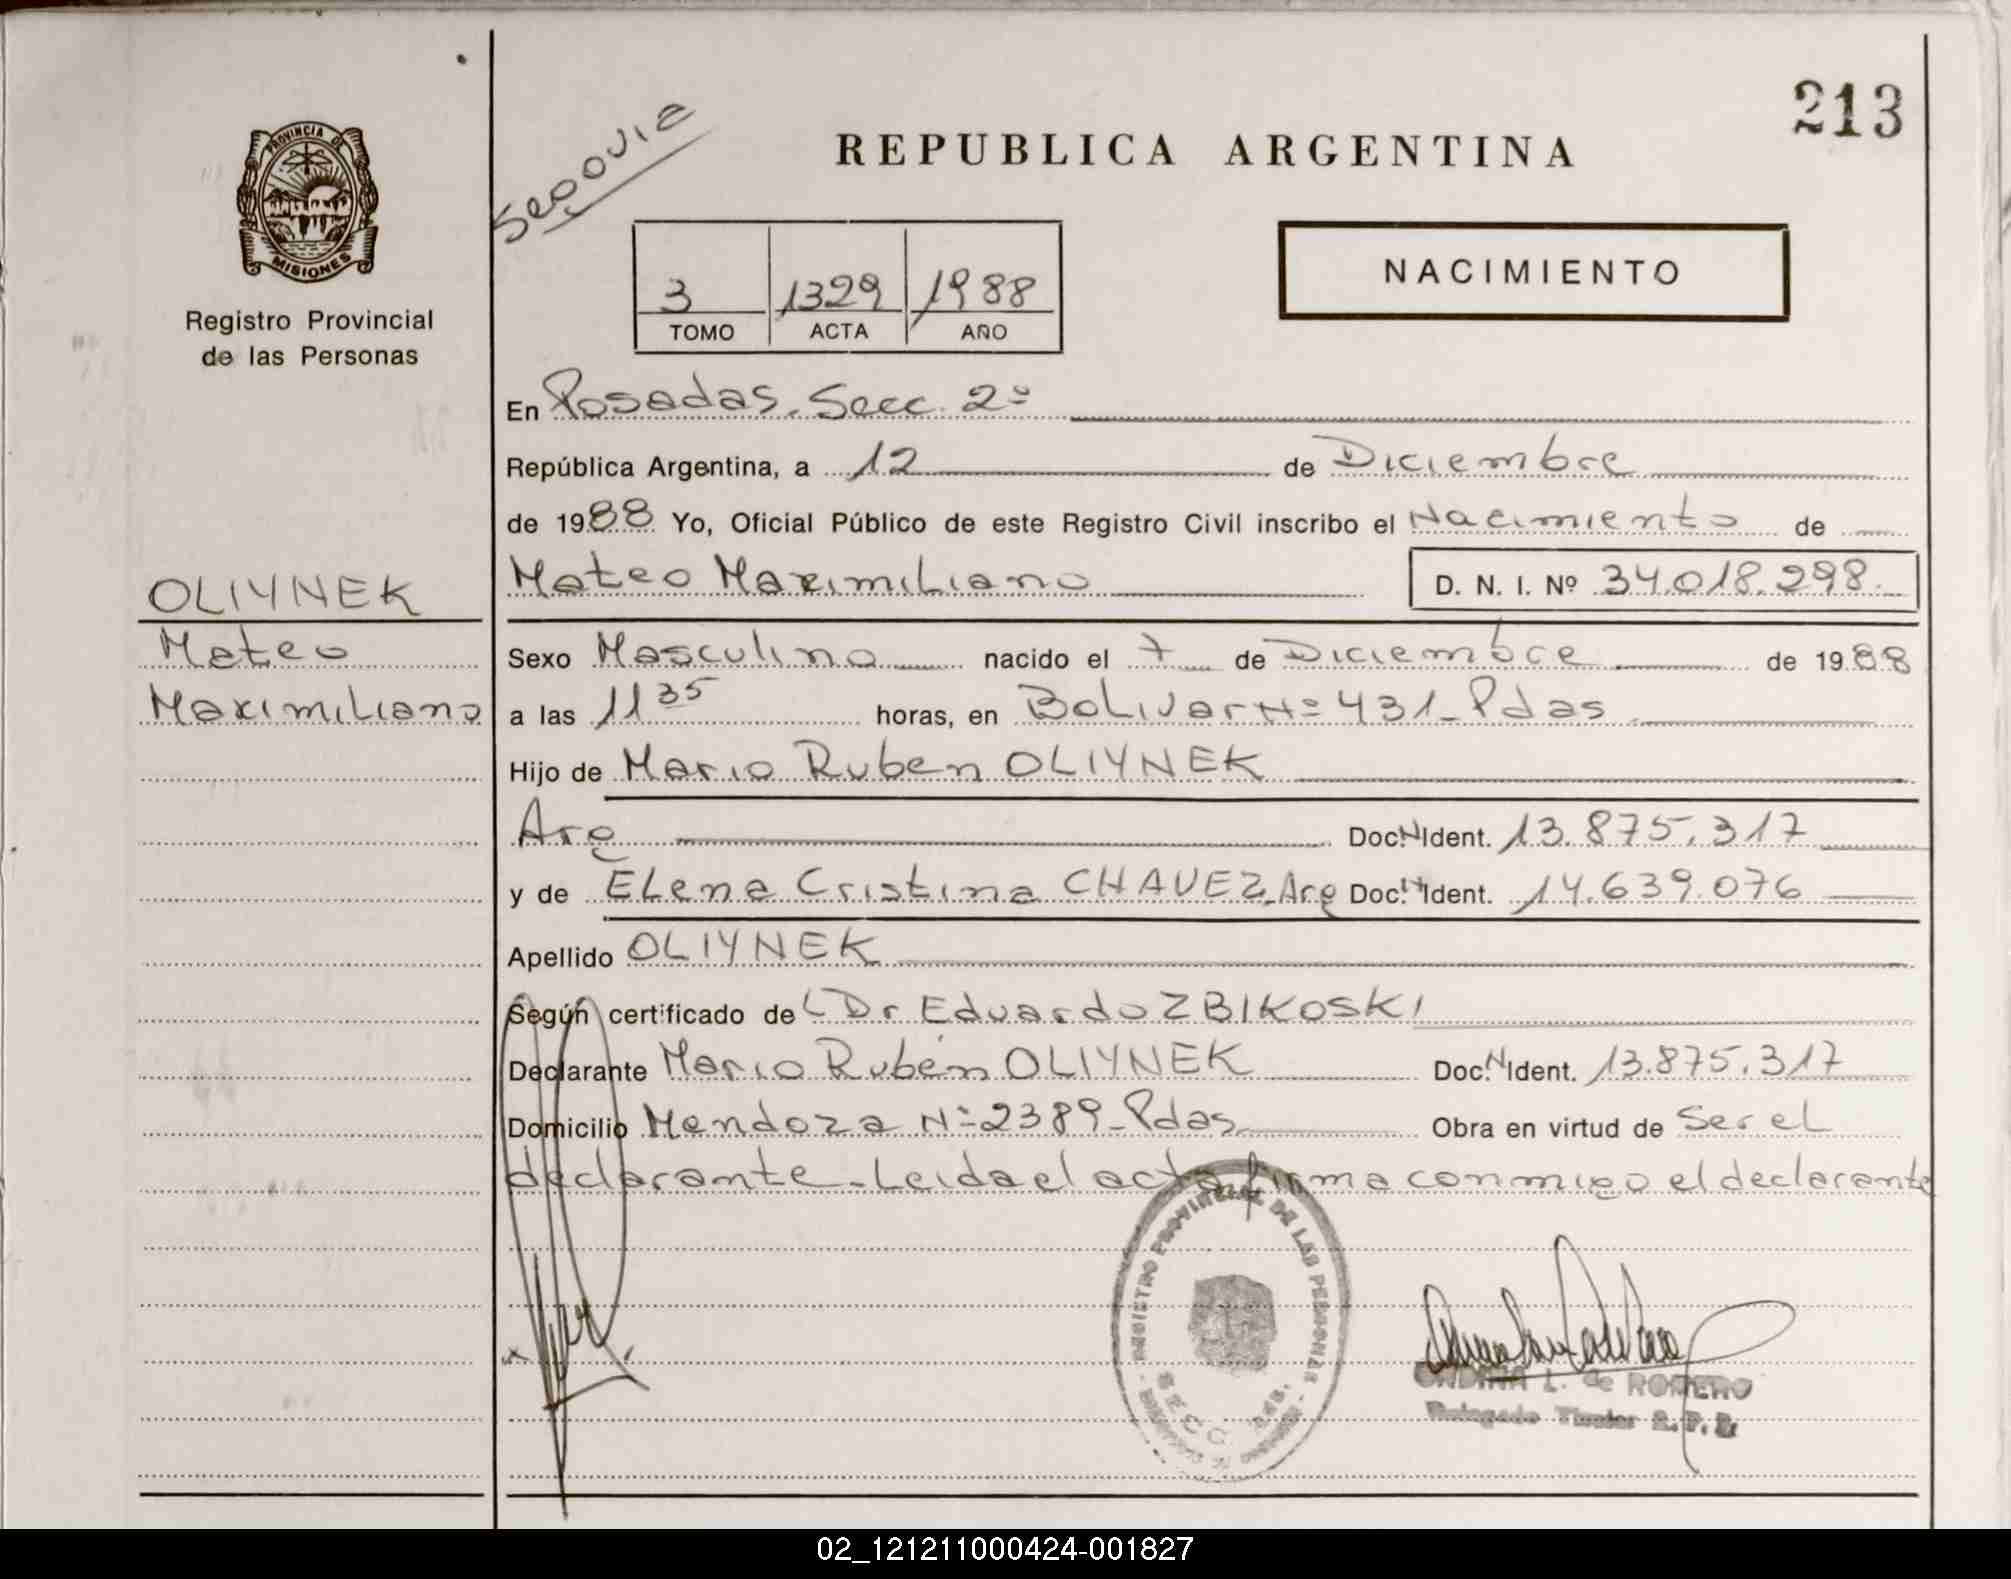 213
Segovia
REPUBLICA ARGENTINA
PROVINCIA DE
MISIONES
Registro Provincial
de las Personas
3 1329 1988
TOMO ACTA AÑO
NACIMIENTO
En Posadas. Secc. 2º
República Argentina, a 12 de Diciembre
de 1988 Yo, Oficial Público de este Registro Civil inscribo el Nacimiento de
Mateo Maximiliano D. N. I. Nº 34.018.298.
OLIYNEK
Mateo
Maximiliano
Sexo Masculino nacido el 7 de Diciembre de 1988
a las 11 35 horas, en Bolivar Nº 431_Pdas
Hijo de Mario Ruben OLIYNEK
Arg Doc. N Ident. 13.875.317
y de Elena Cristina CHAVEZ. Arg Doc. N Ident. 14.639.076
Apellido OLIYNEK
Según certificado de Dr Eduardo ZBIKOSKI
Declarante Mario Rubén OLIYNEK Doc. N Ident. 13.875.317
Domicilio Mendoza Nº 2389_Pdas Obra en virtud de Ser el
declarante_Leida el acta firma conmigo el declarante
REGISTRO PROVINCIAL DE LAS PERSONAS
SECC.
L. de ROMERO
Titular R.P.P.
02_121211000424-001827